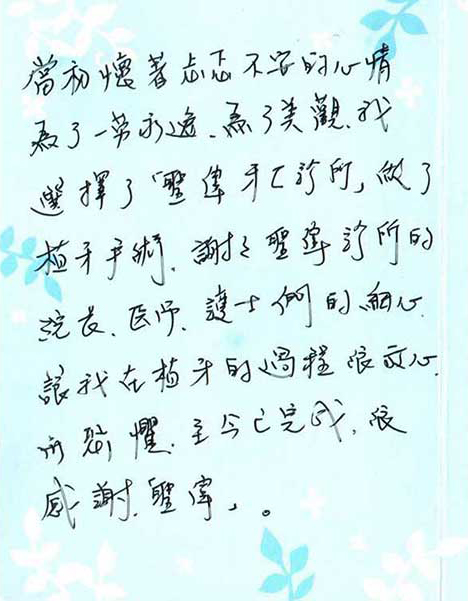 當初懷著忐忑不安的心情
為了一勞永逸、為了美觀、我
選擇了「聖偉牙仁診所」做了
植牙手術、謝々聖偉診所的
院長、医师、護士們的細心、
讓我在植牙的過程很放心、
所懼、至今已完成、很
感謝、聖偉」。